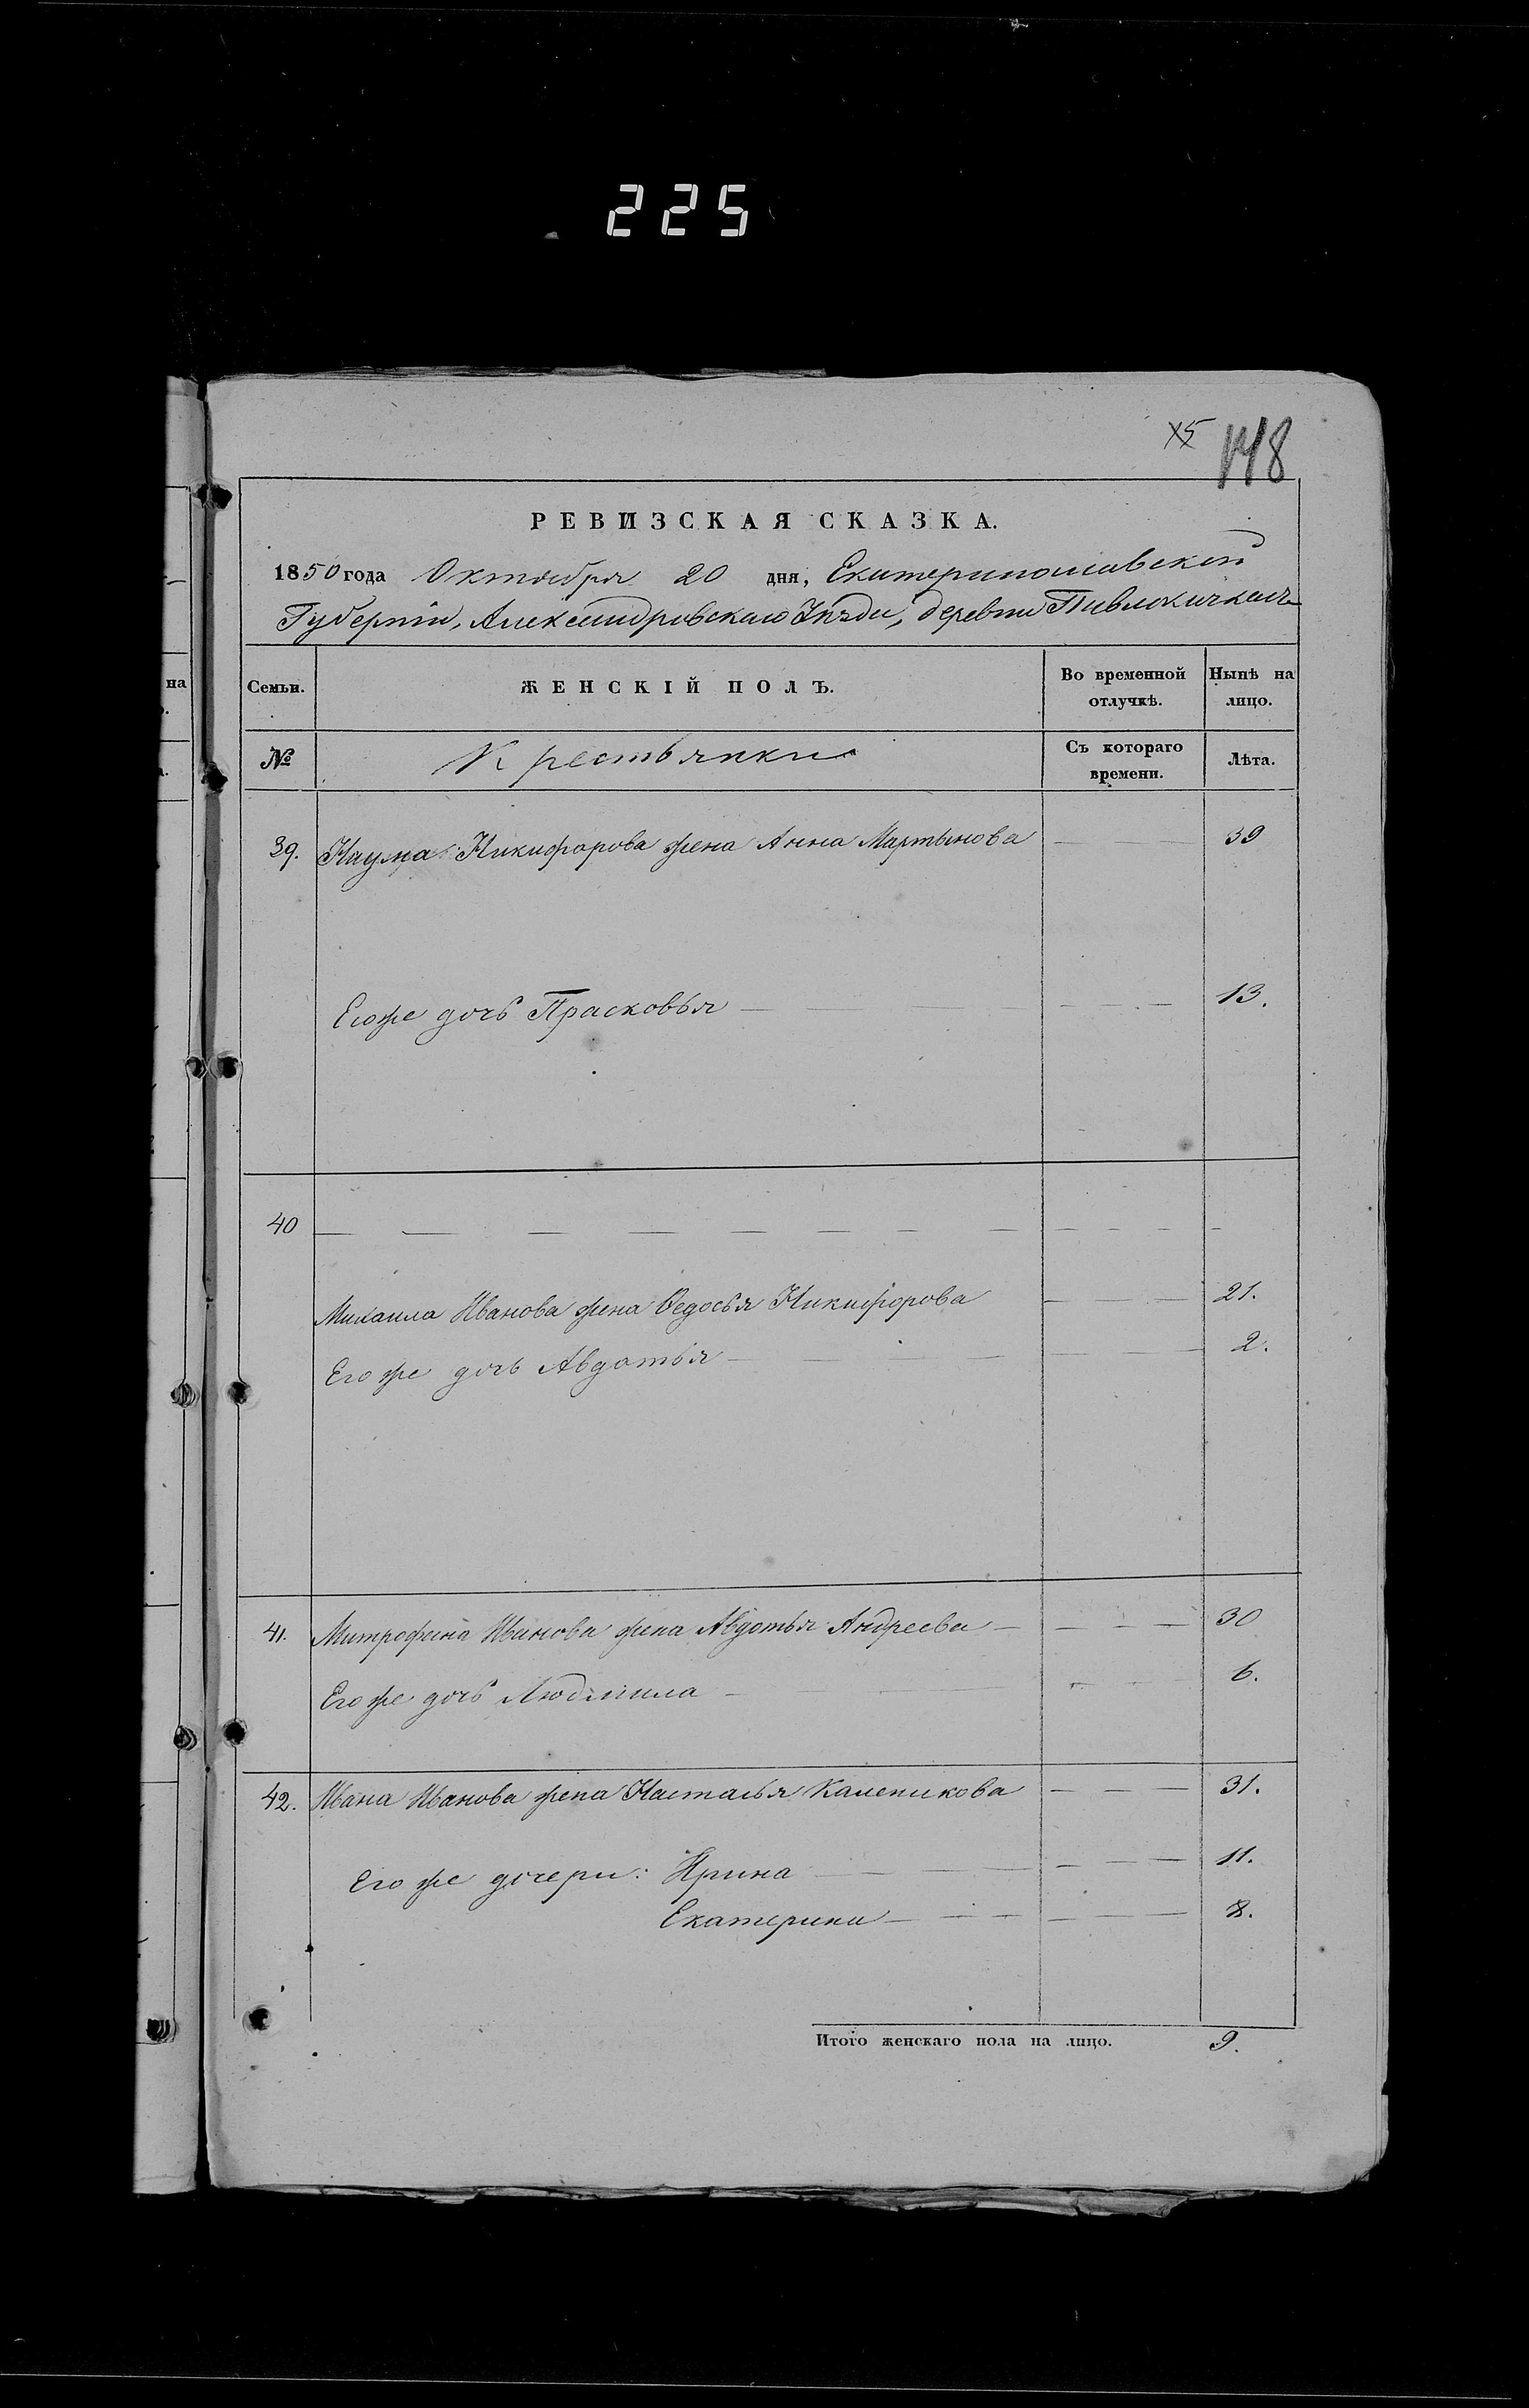 225
148
РЕВИЗСКАЯ СКАЗКА.
1850 года Октября 20 дня, Екатеринославской
Губерніи, Александровскаго Уѣзда, деревни Павлокичкасъ
на
Семьи. ЖЕНСКІЙ ПОЛЪ. Во временной отлучкѣ. Нынѣ на лицо.
№ Крестьянки Съ котораго времени. Лѣта.
39. Наума Никифорова жена Анна Мартынова — 39
Его же дочь Прасковья — 13.
40 — — — — — — — —
Михаила Иванова жена Ѳедосья Никифорова — 21.
Его же дочь Авдотья — 2.
41. Митрофана Иванова жена Авдотья Андреева — 30
Его же дочь Людмила — 6.
42. Ивана Иванова жена Наталья Каленикова — 31.
Его же дочери: Ирина — 11.
Екатерина — 8.
Итого женскаго пола на лицо. 9.